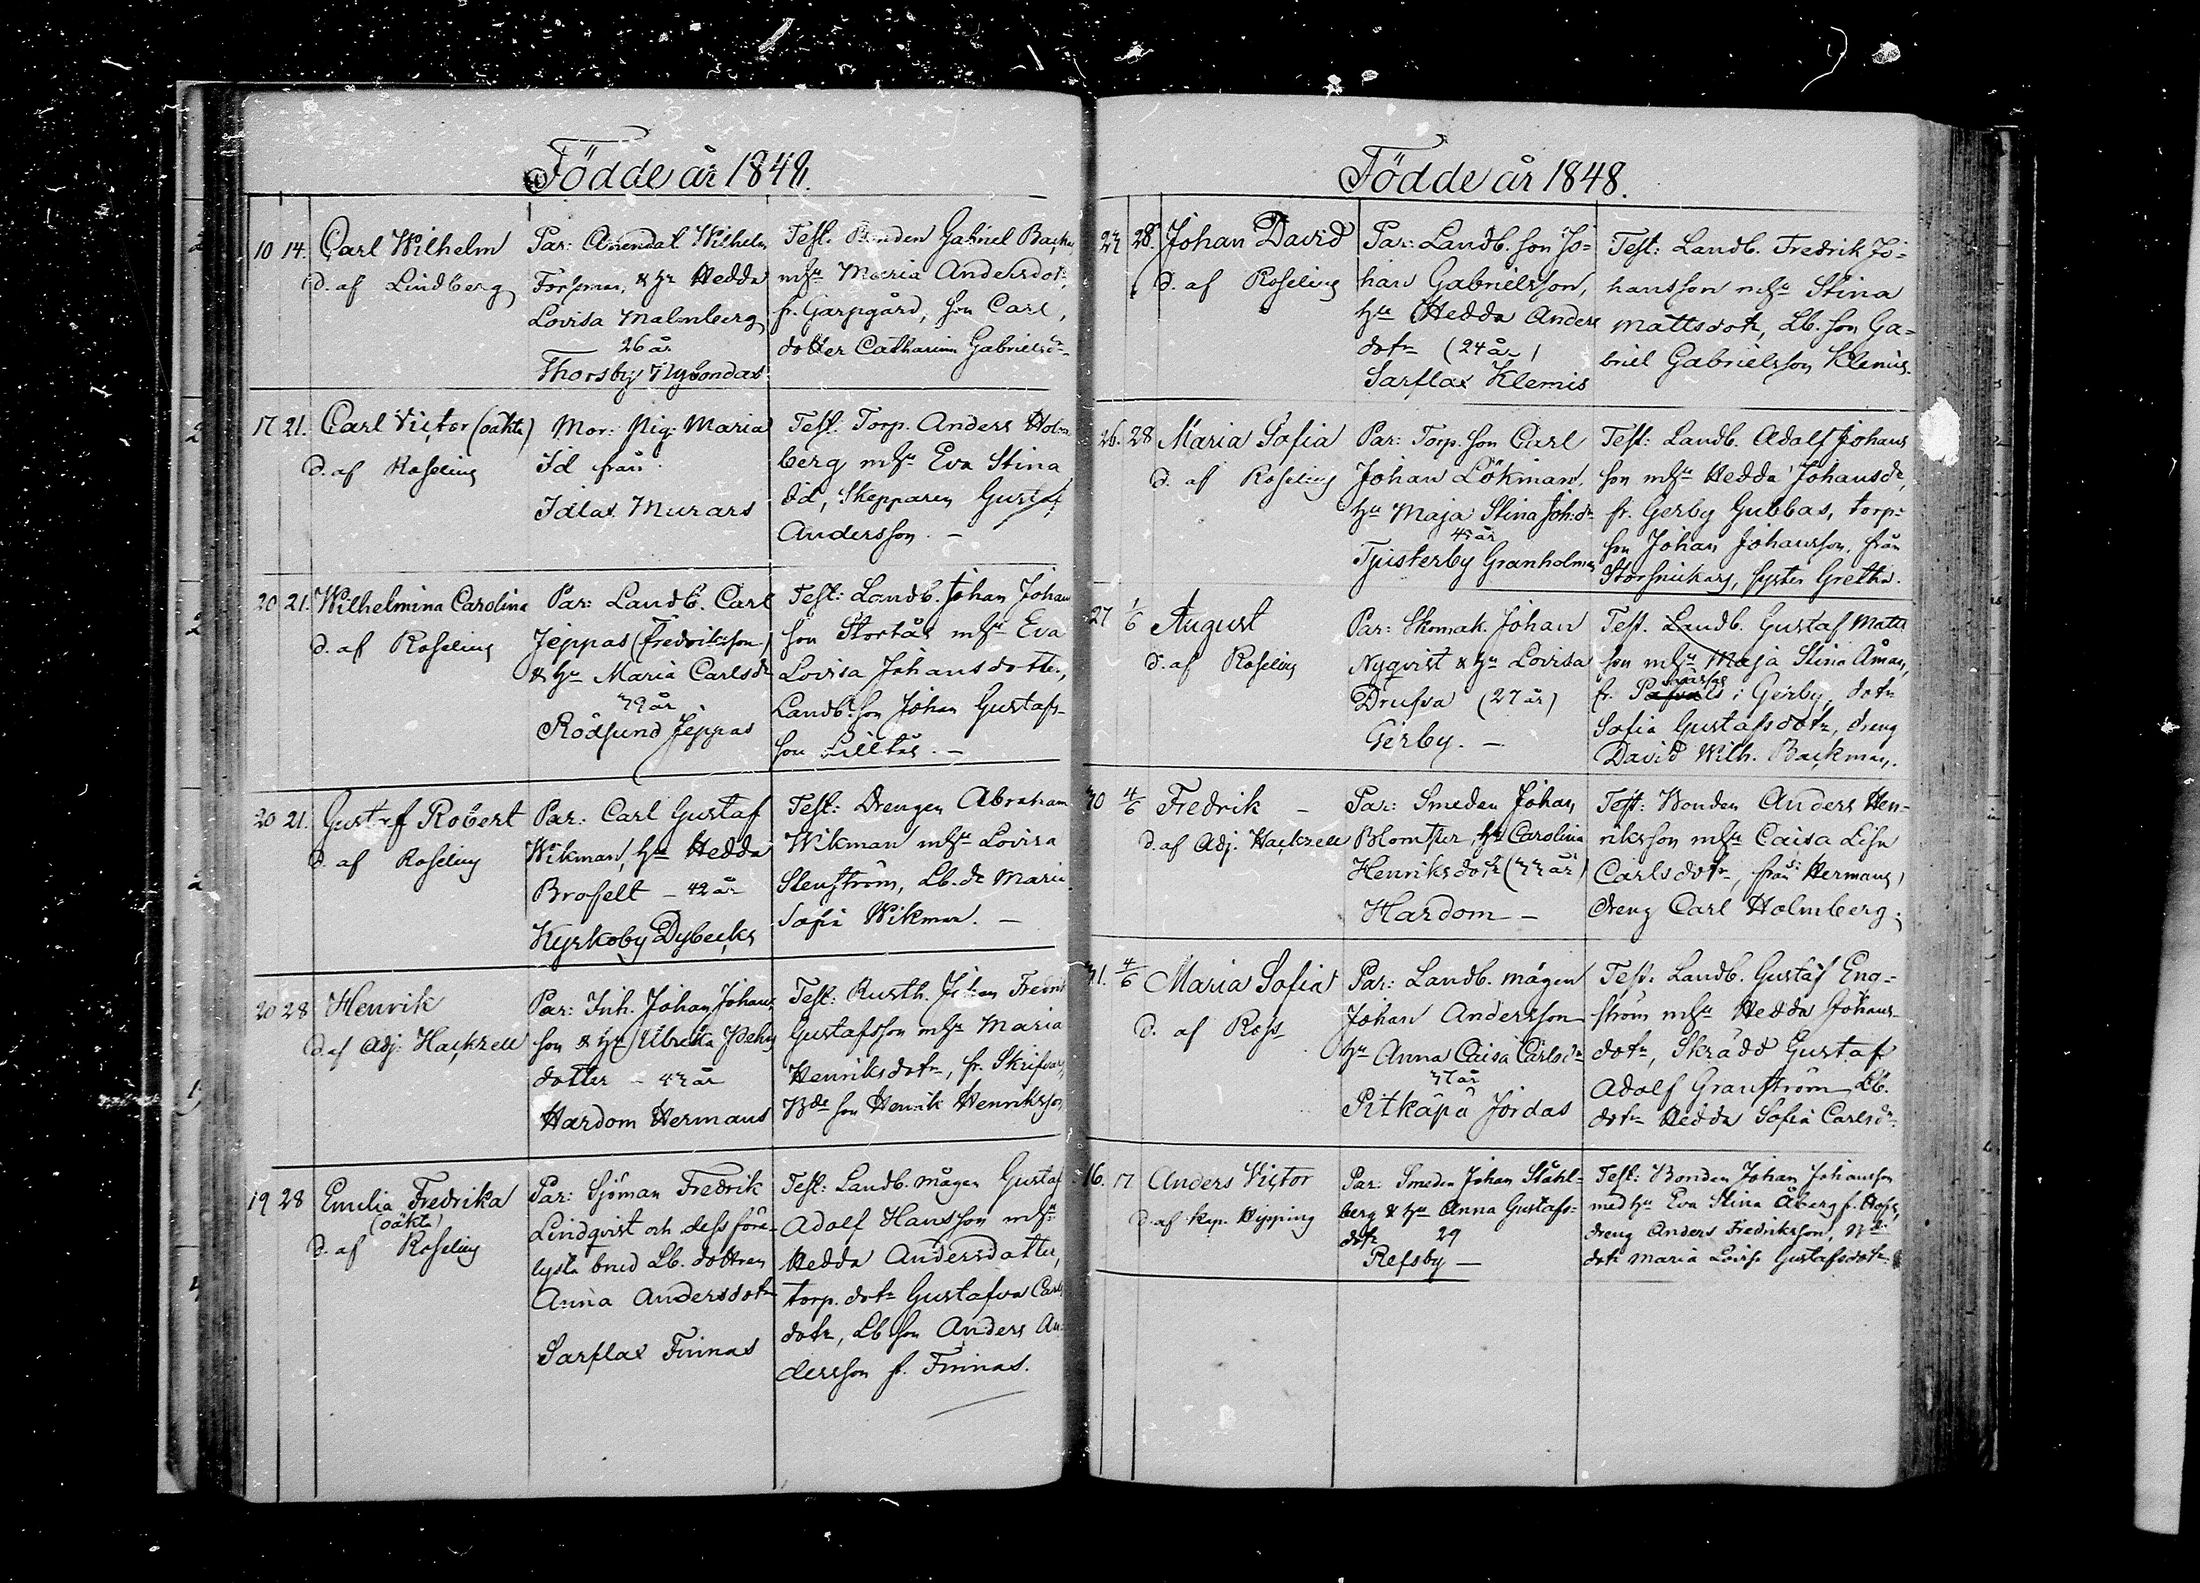 Födde år 1848.
10 14. Carl Wilhelm
d. af Lindberg
Par: Amendat Wilhelm
Forsman, & hu Hedda
Lovisa Malmberg
26 år
Thorsby Nybondas
Test. Bonden Gabriel Backm
mhu Maria Andersdotr,
fr. Garpgård, son Carl,
dotter Catharina Gabrielsdr
17 21. Carl Victor (oäkta)
d. af Roseling
Mor: Pig: Maria
Id från
Idlax Murars
Test: Torp. Anders Holm
berg mhu Eva Stina
Id, Skepparen Gustaf
Andersson. -
20 21. Wilhelmina Carolina
d. af Roseling
Par: Landb. Carl
Jeppas (Fredriksson)
& hu Maria Carlsdr
39 år
Rödsund Jeppas
Test: Landb. Johan Johans
son Stortås mhu Eva
Lovisa Johansdotter,
Landb. son Johan Gustafs-
son Lilltås. -
20 21. Gustaf Robert
d. af Roseling
Par: Carl Gustaf
Wikman, hu Hedda
Brofelt - 42 år
Kyrkoby Dybecks
Test: Drengen Abraham
Wikman mhu Lovisa
Stenström, Lb. dr Maria
Sofia Wikman. -
20 28 Henrik
d. af Adj. Hackzell
Par: Inh. Johan Johans
son & hu Ulrika
dotter - 43 år
Hardom Hermans
Test: Rusth. Johan Fredrik
Gustafsson mhu Maria
Henriksdotr, fr. Skrifvars,
Bde son Henrik Henriksson
19 28 Emilia Fredrika
(oäkta)
d. af Roseling
Par: Sjöman Fredrik
Lindqvist och dess före
lysta brud Lb. dottren
Anna Andersdotr
Sarflax Finnas
Test: Landb. mågen Gustaf
Adolf Hansson mhu
Hedda Andersdotter,
torp. dotr Gustafva Carls
dotr, Lb son Anders An-
dersson fr. Finnas.
Födde år 1848.
27 28. Johan David
d. af Roseling
Par: Landb. son Jo-
han Gabrielsson,
hu Hedda Anders
dotr (24 år)
Sarflax Klemis
Test: Landb. Fredrik Jo-
hansson mhu Stina
Mattsdotr, Lb. son Ga-
briel Gabrielsson Klemis.
26. 28 Maria Sofia
d. af Roseling
Par: Torp. son Carl
Johan Lökman,
hu Maja Stina Joh:dr
45 år
Tjusterby Granholmen
Test: Landb. Adolf Johans
son mhu Hedda Johansdr,
fr. Gerby Gubbas, torp-
son Johan Johansson, från
Storsnickars, syster Gretha.
27 1/6 August
d. af Roseling
Par: Skomak. Johan
Nyqvist & hu Lovisa
Drufva (27 år)
Gerby. -
Test. Landb. Gustaf Matts
son mhu Maja Stina Åman,
fr. i Gerby, dotr
Sofia Gustafsdotr, dreng
David Wilh. Backman.
30 4/6 Fredrik -
d. af Adj. Hackzell
Par: Smeden Johan
Blomster, hu Carolina
Henriksdotr (33 år)
Hardom -
Test: Bonden Anders Hen-
riksson mhu Caisa Lisa
Carlsdotr, från Hermans,
dreng Carl Holmberg.
31. 4/6 Maria Sofia
d. af Ros
Par: Landb. mågen
Johan Andersson
hu Anna Caisa Carlsdr
37 år
Pitkäpä Jordas
Test: Landb. Gustaf Eng-
ström mhu Hedda Johans-
dotr, Skrädd Gustaf
Adolf Granström Lb.
dotr Hedda Sofia Carlsdr.
16. 17 Anders Victor
d. af Kap. Wipping
Par: Smeden Johan Ståhl-
berg & hu Anna Gustafs-
dotr 29
Refsby -
Test: Bonden Johan Johansson
med hu Eva Stina Åberg fr. Hops,
dreng Anders Fredriksson, Bde
dotr Maria Lovisa Gustafsdotr.